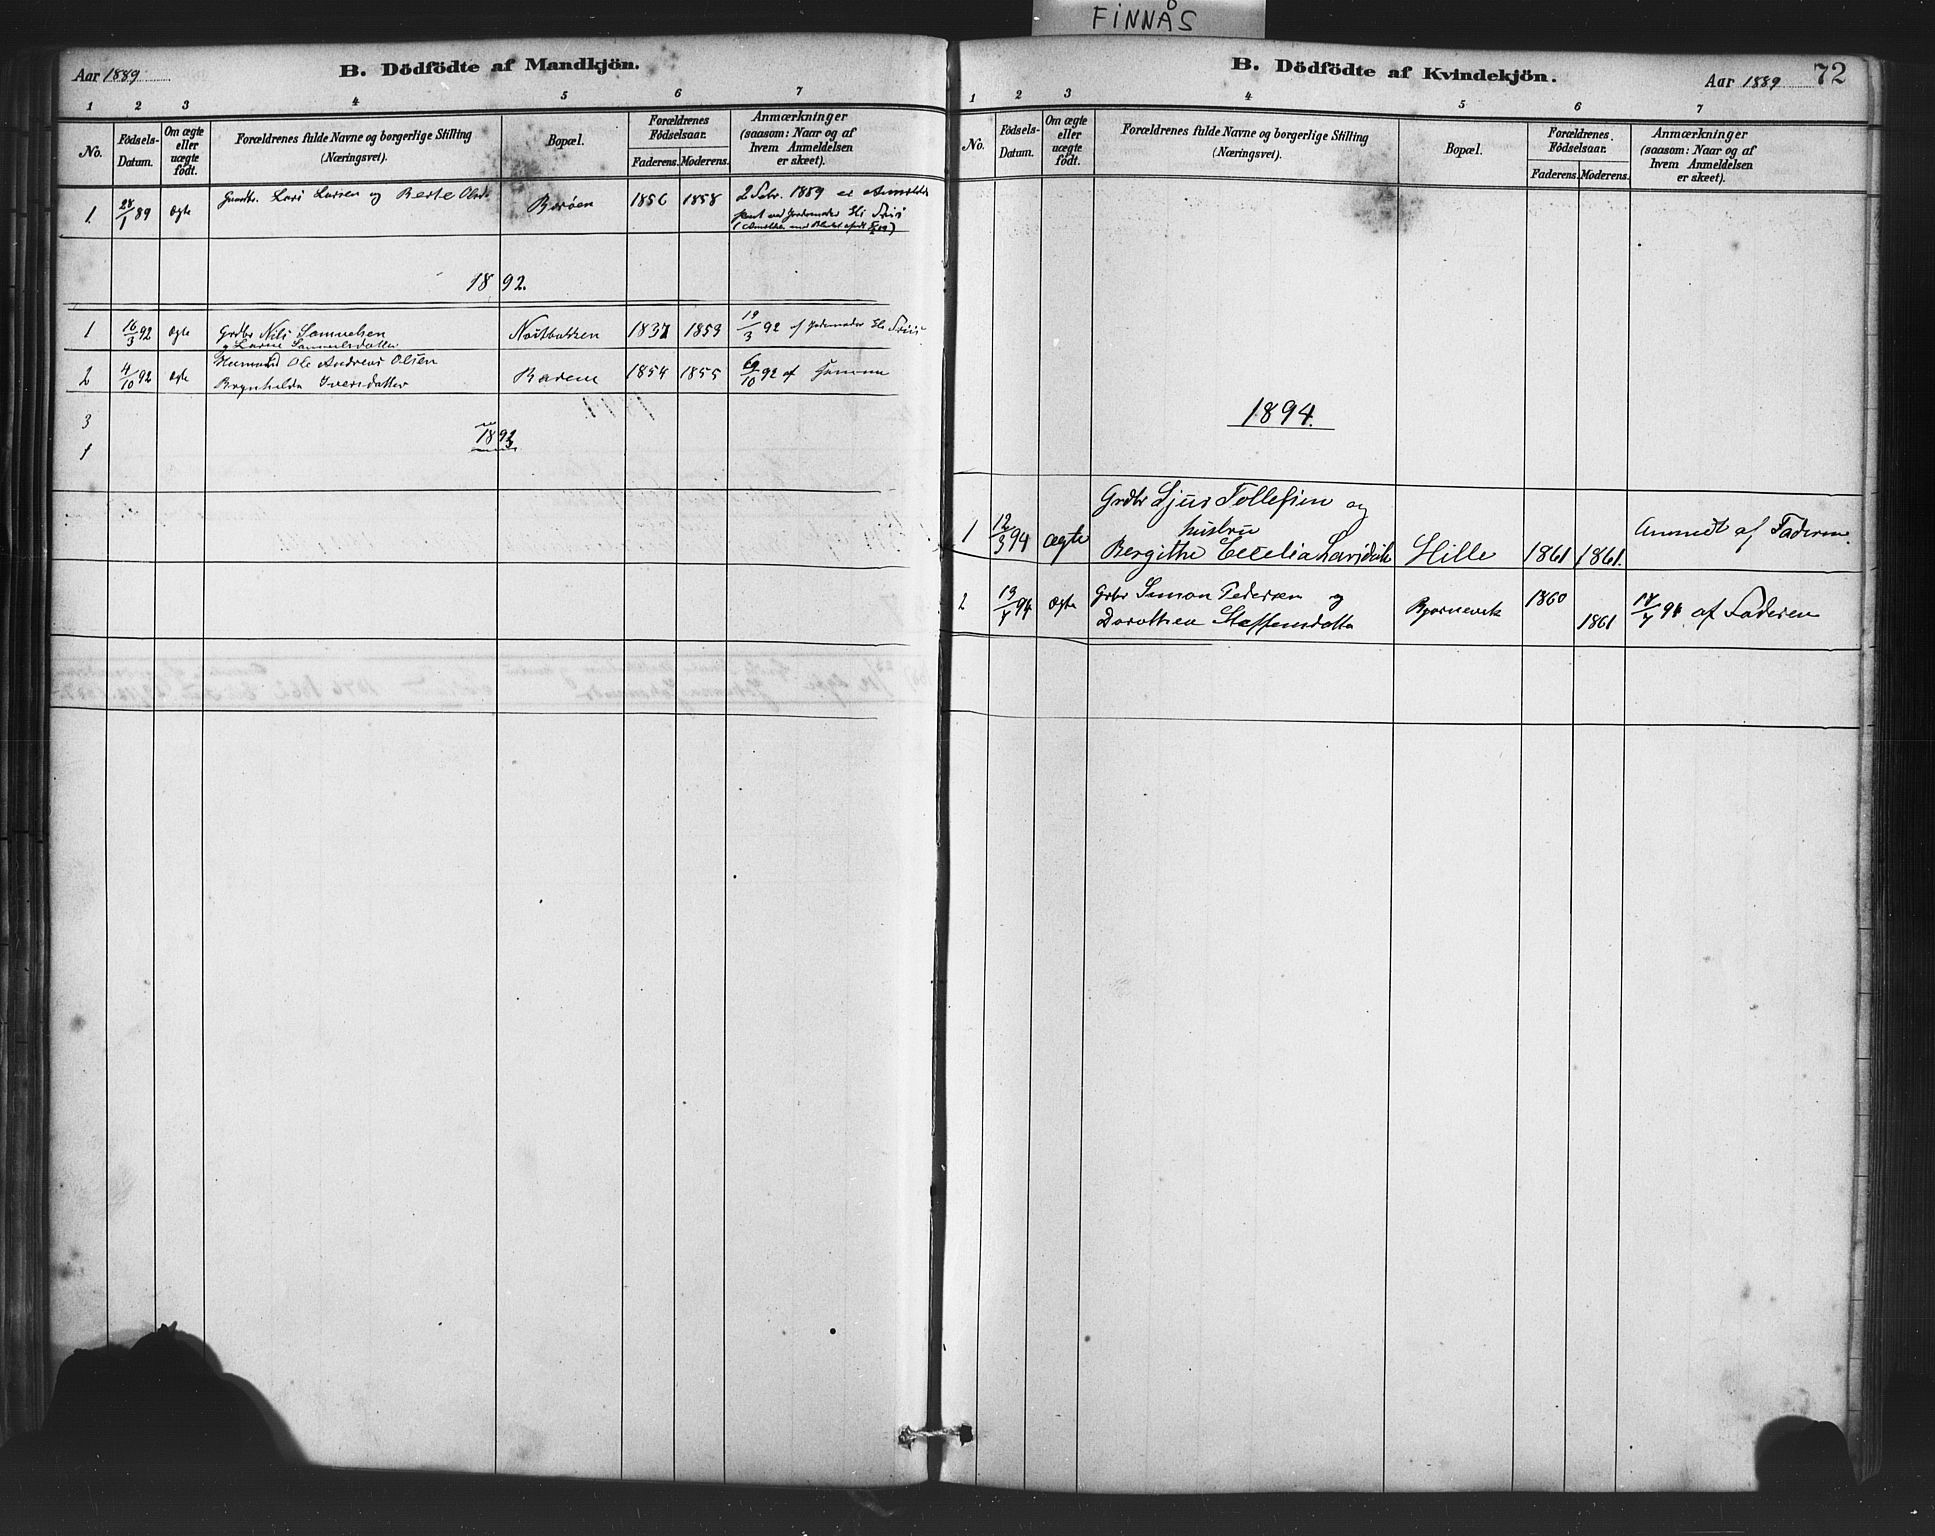 FINNÅS
Aar 1889
B. Dödfödte af Mandkjön.
1 2 3 4 5 6 7
No.
Födsels-Datum.
Om ægte eller uægte født.
Forældrenes fulde Navne og borgerlige Stilling (Næringsvei).
Bopæl.
Forældrenes Födselsaar.
Faderens. Moderens.
Anmærkninger (saasom: Naar og af hvem Anmeldelsen er skeet).
1. 28/1 89 Ægte Lars Larsen og Berte Borøen 1856 1858 2 Febr. 1889 er
ved Jordemoder Eli Friis
1892.
1 16/3 92 Ægte Grdbr Nils Samuelsen 1837 1859 19/3 92 af Jordemoder Eli Friis
og Samuelsdatter
2 4/10 92 Ægte Ole Andreas Olsen
Brynhilda Iversdatter 1854 1855 /10 92 af
3
1893
1
B. Dödfödte af Kvindekjön.
Aar 1889 72
1 2 3 4 5 6 7
No.
Födsels-Datum.
Om ægte eller uægte födt.
Forældrenes fulde Navne og borgerlige Stilling (Næringsvei).
Bopæl.
Forældrenes Födselsaar.
Faderens. Moderens.
Anmærkninger (saasom: Naar og af hvem Anmeldelsen er skeet).
1894.
Grdbr Tollefsen og
hustru
1 12/3 94 Ægte Bergithe Cecelia Larsdatt Hille 1861 1861. Anmeldt af Faderen.
2 94 Ægte Grbr Simon Pedersen og
Dorothea Steffensdatter 1860 1861 af Faderen